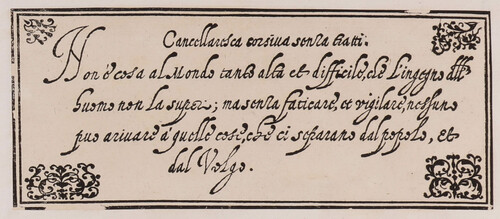 Cancellaresca corsiva senza tratti.
Non è cosa al Mondo tanto alta et difficile, chè l'ingegno dell'
huomo non la superi; ma senza faticare, et vigilare, nessuno
puo arivare à quelle cose, chè ci separano dal popolo, et
dal Volgo.